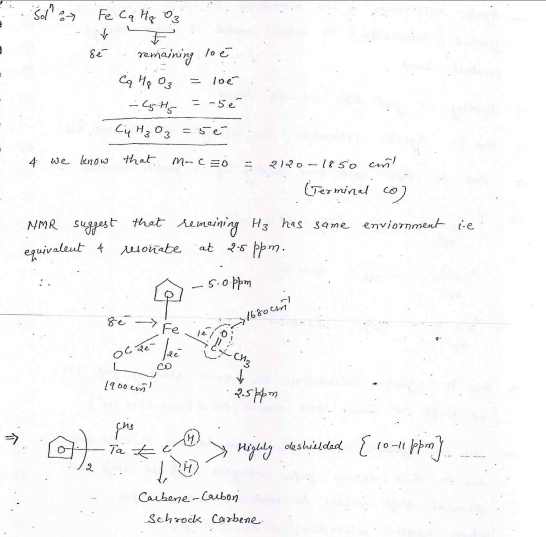 Solⁿ :→ Fe C₉ H₈ O₃
8e⁻ remaining 10e⁻
C₉ H₈ O₃ = 10e⁻
- C₅H₅ = -5e⁻
C₄ H₃ O₃ = 5e⁻
& we know that M-C≡O = 2120-1850 cm⁻¹
(Terminal CO)
NMR suggest that remaining H₃ has same enviornment i.e
equivalent & resonate at 2.5 ppm.
∴
- 5.0 ppm
8e⁻ → Fe 1e⁻ C=O 1680 cm⁻¹
OC 2e⁻ 2e⁻ CO CH₃
1900 cm⁻¹ 2.5 ppm
⇒ CH₃
)₂ Ta = C H H Highly deshielded { 10-11 ppm }
Carbene-Carbon
Schrock Carbene